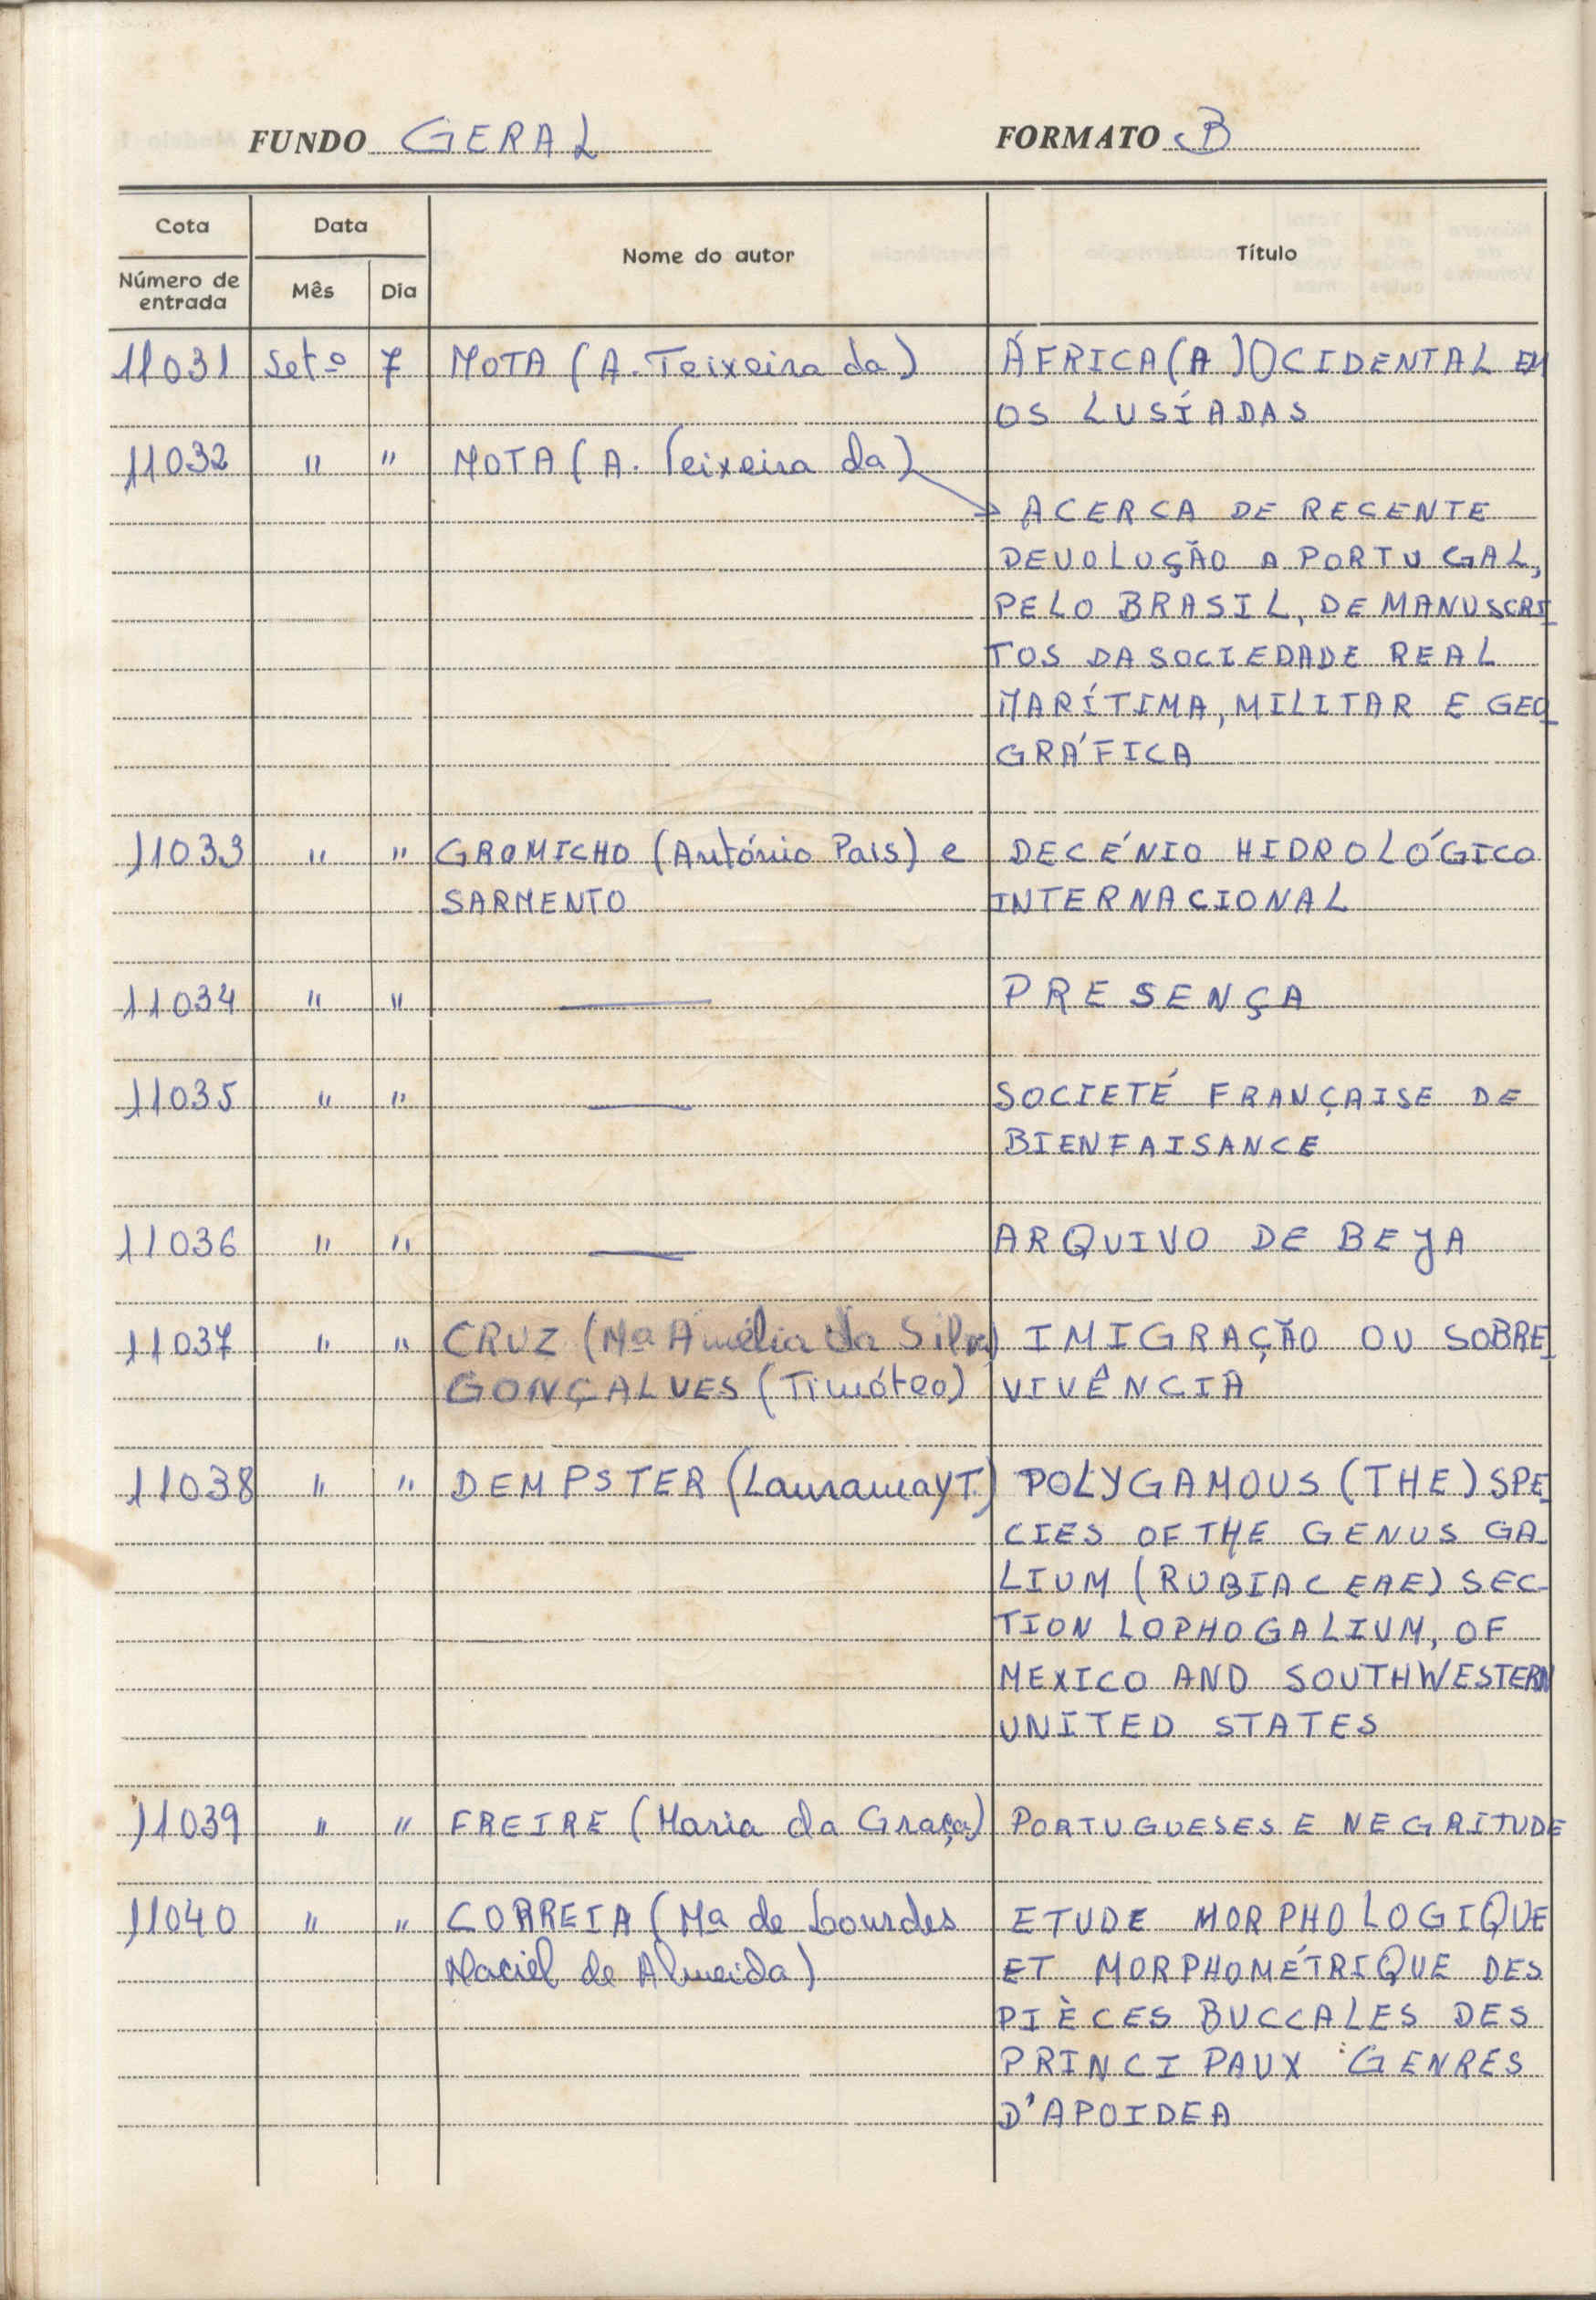 FUNDO GERAL FORMATO B
Cota Data Nome do autor Título
Número de entrada Mês Dia
11031 Setº 7 MOTA (A. Teixeira da) ÁFRICA (A) OCIDENTAL EM
OS LUSÍADAS
11032 " " MOTA (A. Teixeira da)
ACERCA DE RECENTE
DEVOLUÇÃO A PORTUGAL,
PELO BRASIL, DE MANUSCRI
TOS DA SOCIEDADE REAL
MARÍTIMA, MILITAR E GEO
GRÁFICA
11033 " " GROMICHO (António Pais) e DECÉNIO HIDROLÓGICO
SARMENTO INTERNACIONAL
11034 " " — PRESENÇA
11035 " " — SOCIETÉ FRANÇAISE DE
BIENFAISANCE
11036 " " — ARQUIVO DE BEJA
11037 " " CRUZ (Mª Amélia da Silva) IMIGRAÇÃO OU SOBRE
GONÇALVES (Timóteo) VIVÊNCIA
11038 " " DEMPSTER (Lauramay T.) POLYGAMOUS (THE) SPE
CIES OF THE GENUS GA-
LIUM (RUBIACEAE) SEC-
TION LOPHOGALIUM, OF
MEXICO AND SOUTHWESTERN
UNITED STATES
11039 " " FREIRE (Maria da Graça) PORTUGUESES E NEGRITUDE
11040 " " CORREIA (Mª de Lourdes ETUDE MORPHOLOGIQUE
Maciel de Almeida) ET MORPHOMÉTRIQUE DES
PIÈCES BUCCALES DES
PRINCIPAUX GENRES
D'APOIDEA